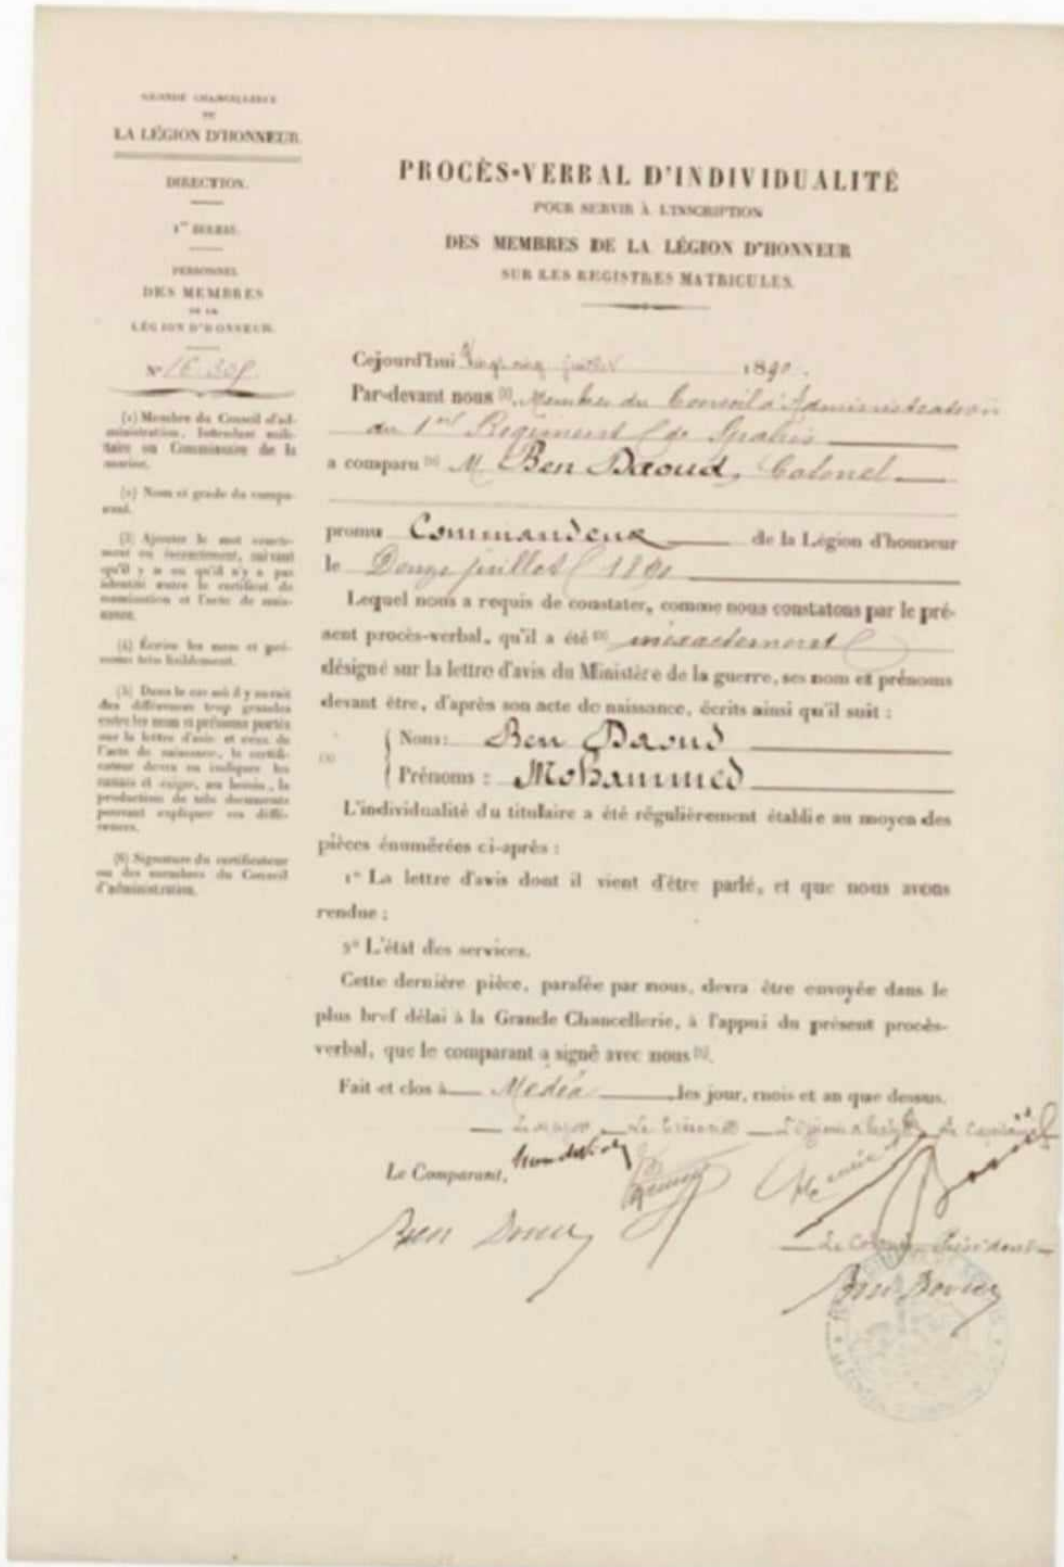 GRANDE CHANCELLERIE
DE
LA LÉGION D'HONNEUR.
DIRECTION.
1er BUREAU.
PERSONNEL
DES MEMBRES
DE LA
LÉGION D'HONNEUR.
N°
(1) Membre du Conseil d'ad-
ministration, Intendant mili-
taire ou Commissaire de la
marine.
(2) Nom et grade du compa-
rant.
(3) Ajouter le mot exacte-
ment ou inexactement, suivant
qu'il y a ou qu'il n'y a pas
identité entre le certificat de
nomination et l'acte de nais-
sance.
(4) Écrire les nom et pré-
noms très lisiblement.
(5) Dans le cas où il y aurait
des différences trop grandes
entre les nom et prénoms portés
sur la lettre d'avis et ceux de
l'acte de naissance, le certifi-
cateur devra en indiquer les
causes et exiger, au besoin, la
production de tels documents
pouvant expliquer ces diffé-
rences.
(6) Signature du certificateur
ou des membres du Conseil
d'administration.
PROCÈS-VERBAL D'INDIVIDUALITÉ
POUR SERVIR À L'INSCRIPTION
DES MEMBRES DE LA LÉGION D'HONNEUR
SUR LES REGISTRES MATRICULES.
Cejourd'hui Vingt cinq juillet 1890.
Par-devant nous (1), Membres du Conseil d'Administration
du 1er Régiment de Spahis
a comparu (2) M Ben Daoud, Colonel
promu Commandeur de la Légion d'honneur
le Douze juillet 1890
Lequel nous a requis de constater, comme nous constatons par le pré-
sent procès-verbal, qu'il a été (3) inexactement
désigné sur la lettre d'avis du Ministère de la guerre, ses nom et prénoms
devant être, d'après son acte de naissance, écrits ainsi qu'il suit :
Nom: Ben Daoud
Prénoms : Mohammed
L'individualité du titulaire a été régulièrement établie au moyen des
pièces énumérées ci-après :
1° La lettre d'avis dont il vient d'être parlé, et que nous avons
rendue ;
2° L'état des services.
Cette dernière pièce, parafée par nous, devra être envoyée dans le
plus bref délai à la Grande Chancellerie, à l'appui du présent procès-
verbal, que le comparant a signé avec nous
Fait et clos à Médéa les jour, mois et an que dessus.
Le Major Le Trésorier Le Capitaine
Le Comparant,
Ben Daoud
Le Colonel Président
Ben Daoud